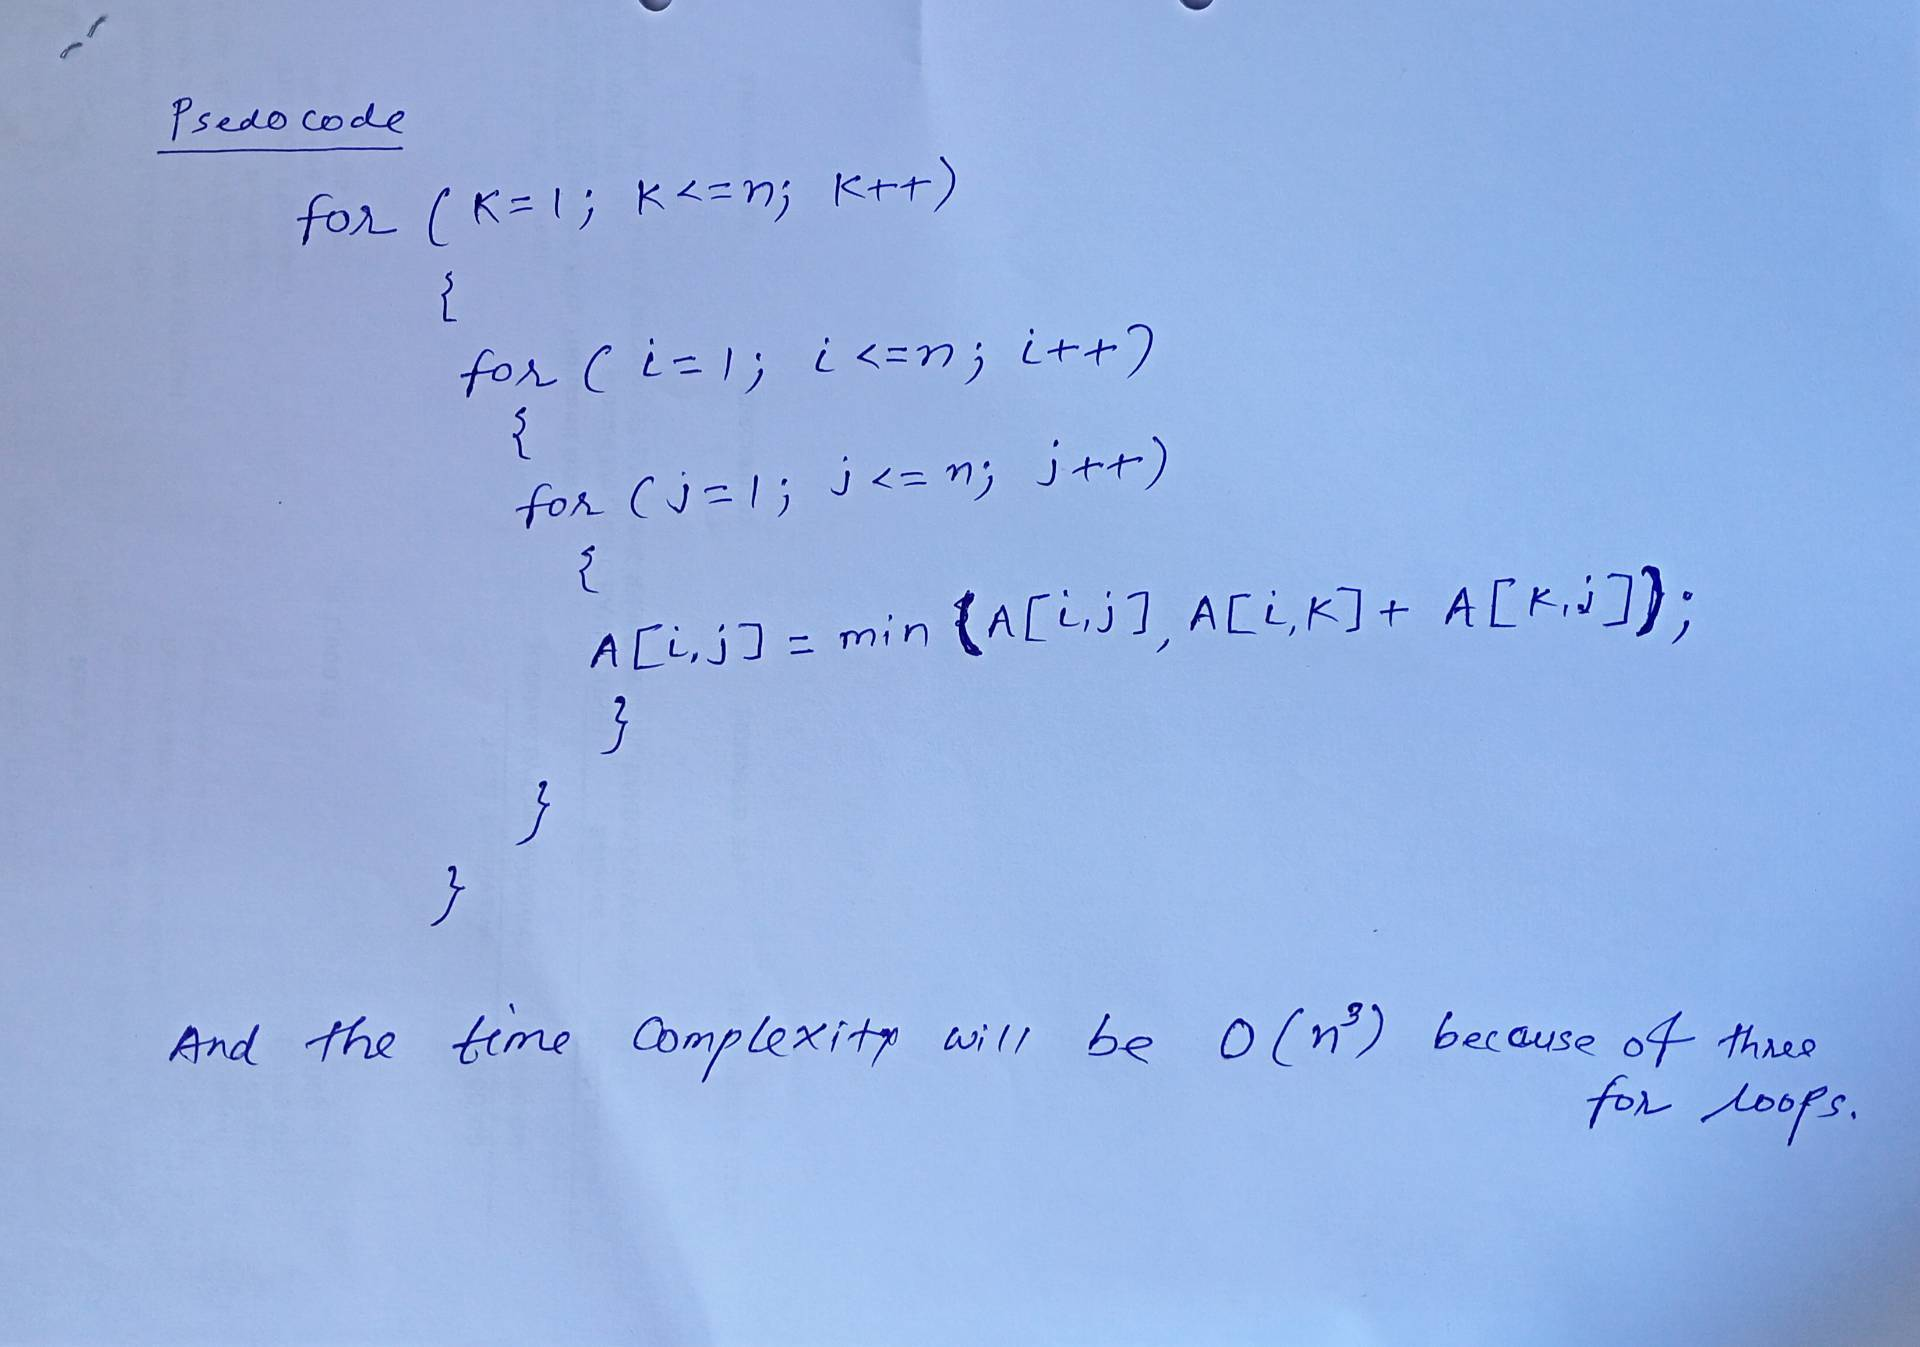 Psedo code
for (K=1; K<=n; K++)
{
for (i=1; i<=n; i++)
{
for (j=1; j<=n; j++)
{
A[i,j] = min {A[i,j], A[i,K] + A[K,j]};
}
}
}
And the time Complexity will be O(n³) because of three
for loops.